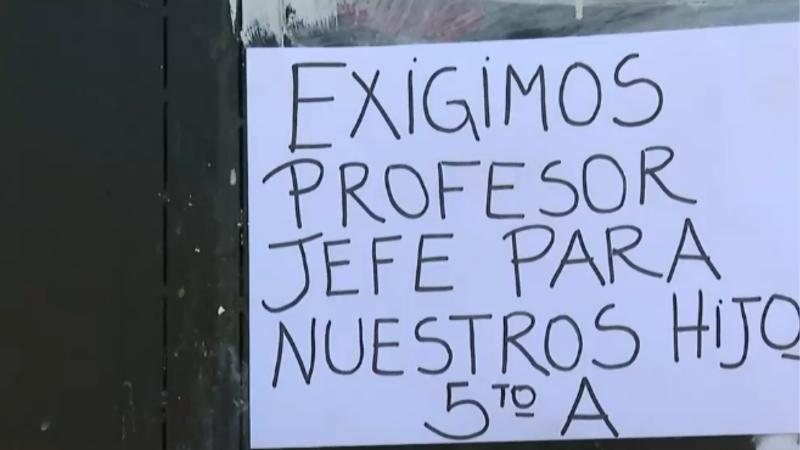 EXiGiMOS
PROFESOR
JEFE PARA
NUESTROS HiJO
5ᵀº A